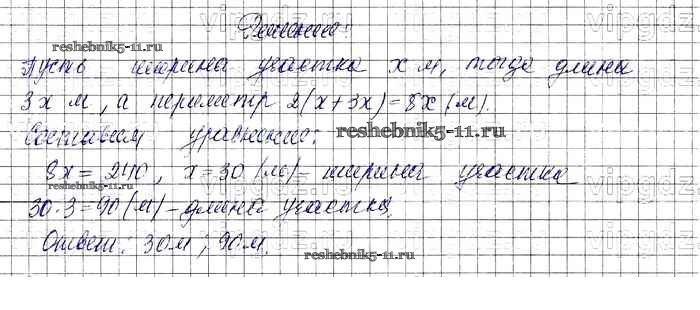 Решение:
Пусть ширина участка x м, тогда длина
3x м, а периметр 2(x+3x)=8x (м).
Составим уравнение:
8x = 240, x = 30 (м) – ширина участка
30·3=90 (м) – длина участка.
Ответ: 30м ; 90м.
reshebnik5-11.ru
reshebnik5-11.ru
reshebnik5-11.ru
reshebnik5-11.ru
vipgdz
vipgdz
vipgdz
vipgdz